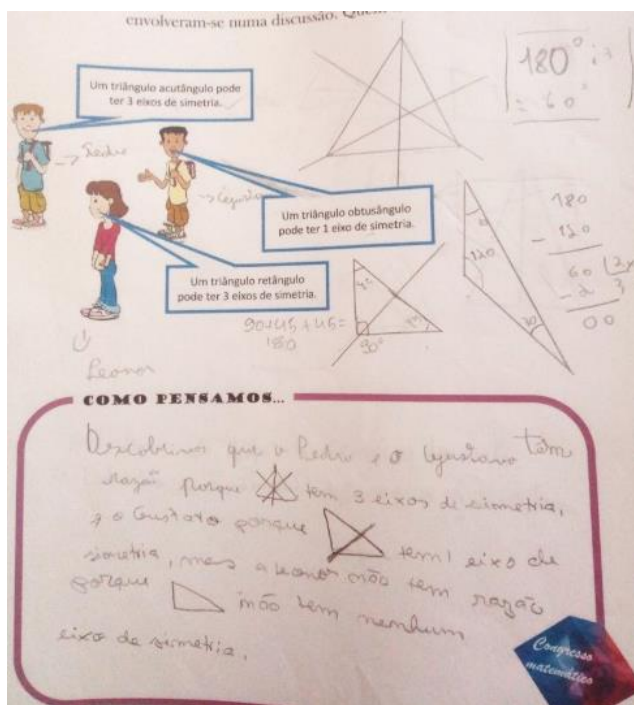 envolveram-se numa discussão.
Um triângulo acutângulo pode
ter 3 eixos de simetria.
→ Pedro
→ Gustavo
Um triângulo obtusângulo
pode ter 1 eixo de simetria.
Um triângulo retângulo
pode ter 3 eixos de simetria.
Leonor
180° : 3
= 60°
180
- 120
60
00
120
30
90+45+45=
180
45
90°
COMO PENSAMOS...
Descobrimos que o Pedro e o Gustavo têm
razão porque tem 3 eixos de simetria,
e o Gustavo porque tem 1 eixo de
simetria, mas a Leonor não tem razão
porque não tem nenhum
eixo de simetria.
Congresso
matemático